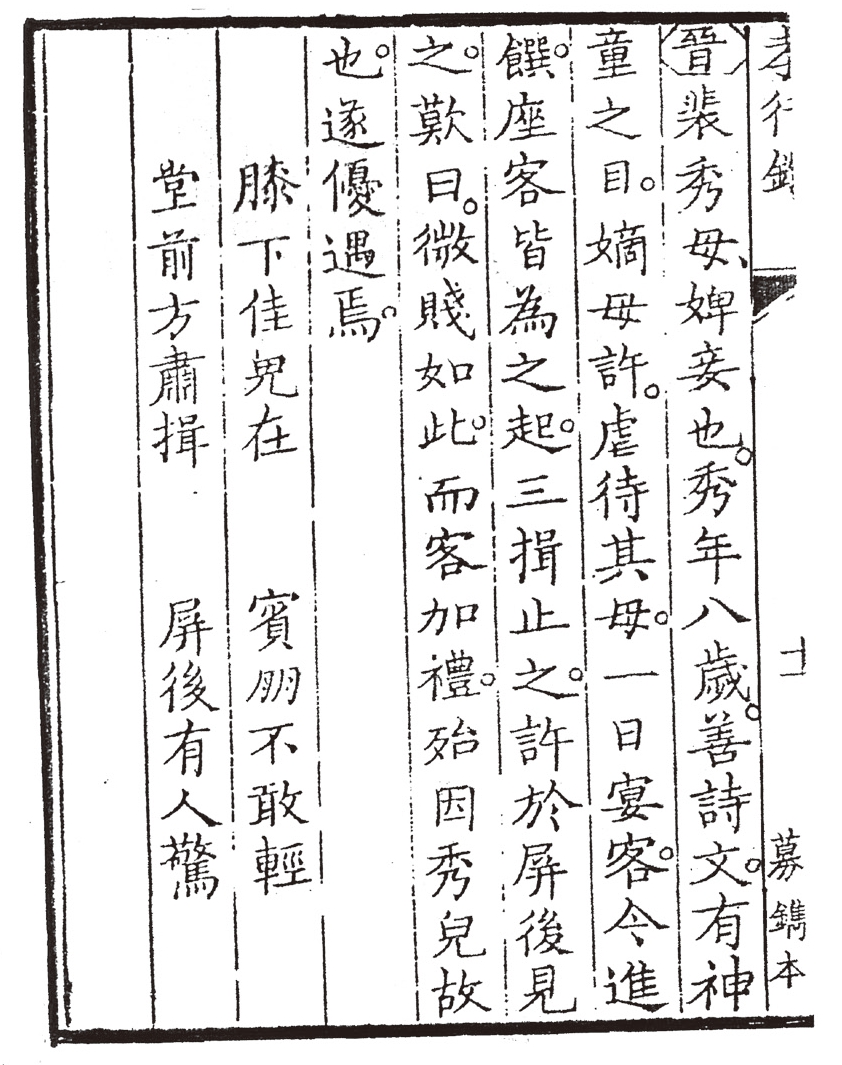 孝行錄
十一
募鐫本
晉裴秀母、婢妾也。秀年八歲。善詩文。有神
童之目。嫡母許。虐待其母。一日宴客。令進
饌。座客皆為之起。三揖止之。許於屏後見
之。歎曰。微賤如此。而客加禮。殆因秀兒故
也。遂優遇焉。
膝下佳兒在　賓朋不敢輕
堂前方肅揖　屏後有人驚